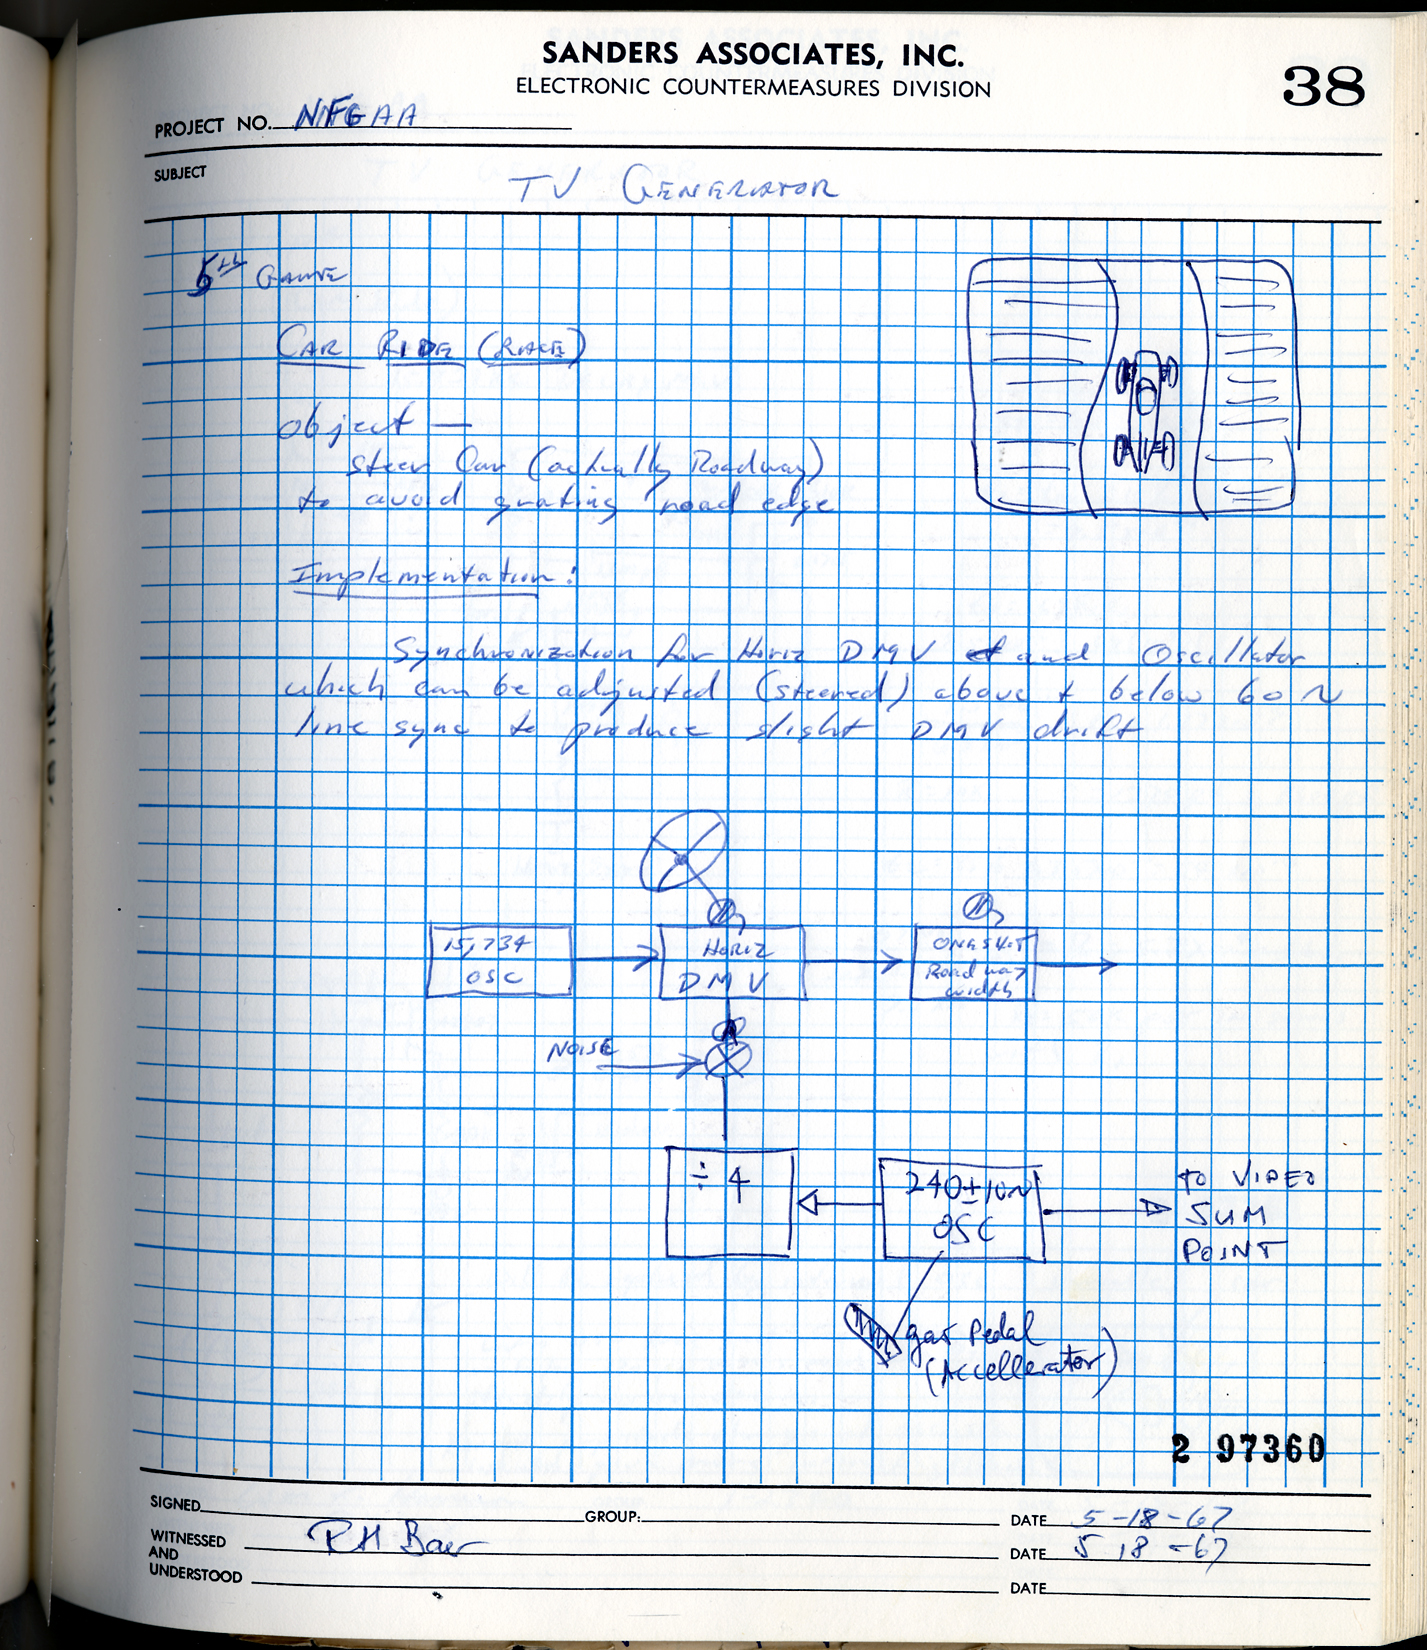 SANDERS ASSOCIATES, INC.
ELECTRONIC COUNTERMEASURES DIVISION
38
PROJECT NO. NFGAA
SUBJECT
TV GENERATOR
5th GAME
CAR RIDE (RACE)
object —
steer Car (actually Roadway)
to avoid grating road edge
Implementation:
Synchronization for Horiz DMV and Oscillator
which can be adjusted (steered) above + below 60 ~
line sync to produce slight DMV drift
15,734
OSC
HORIZ
DMV
ONE SHOT
Roadway
width
NOISE
÷ 4
240±10~
OSC
TO VIDEO
SUM
POINT
gas Pedal
(Accellerator)
2 97360
SIGNED
GROUP:
DATE 5-18-67
WITNESSED
AND
UNDERSTOOD
RH Baer
DATE 5 18 -67
DATE